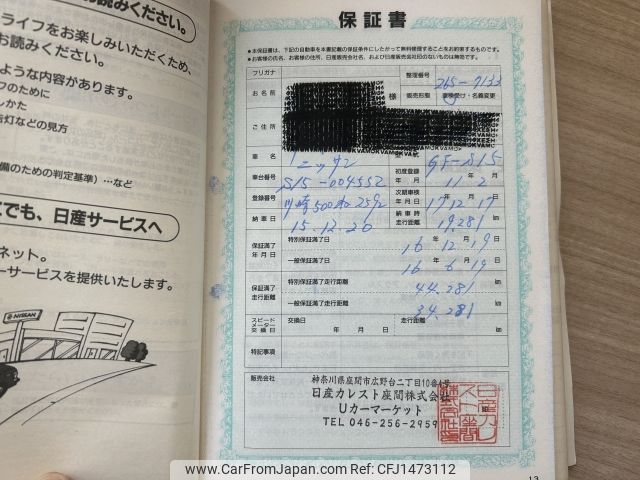 お読みください。
ライフをお楽しみいただくため、
お読みください。
ような内容があります。
のために
しかた
告灯などの見方
備のための判定基準）…など
でも、日産サービスへ
ネット。
ーサービスを提供いたします。
NISSAN
保証書
●本保証書は、下記の自動車を本書記載の保証条件にしたがって無料修理することをお約束するものです。
●お客様の氏名、お客様の住所、日産販売会社名、および日産販売会社印のないものは無効です。
フリガナ
整理番号 265-7133
お名前 様
販売形態 車検受け・名義変更
ご住所
車名 ニッサン 型式 GF-S15
車台番号 S15-004552 初度登録年月 11年2月
登録番号 川崎500 ね 2592 次期車検年月日 17年12月17日
納車日 15.12.20 納車時走行距離 19,281 km
保証満了年月日 特別保証満了日 16年12月19日
一般保証満了日 16年6月19日
保証満了走行距離 特別保証満了走行距離 44,281 km
一般保証満了走行距離 34,281 km
スピードメーター交換日 交換日 年 月 日 走行距離 km
特記事項
販売会社
神奈川県座間市広野台二丁目10番4号
日産カレスト座間株式会社
Uカーマーケット
TEL 046-256-2959
13
www.CarFromJapan.com | © CFJ1473112